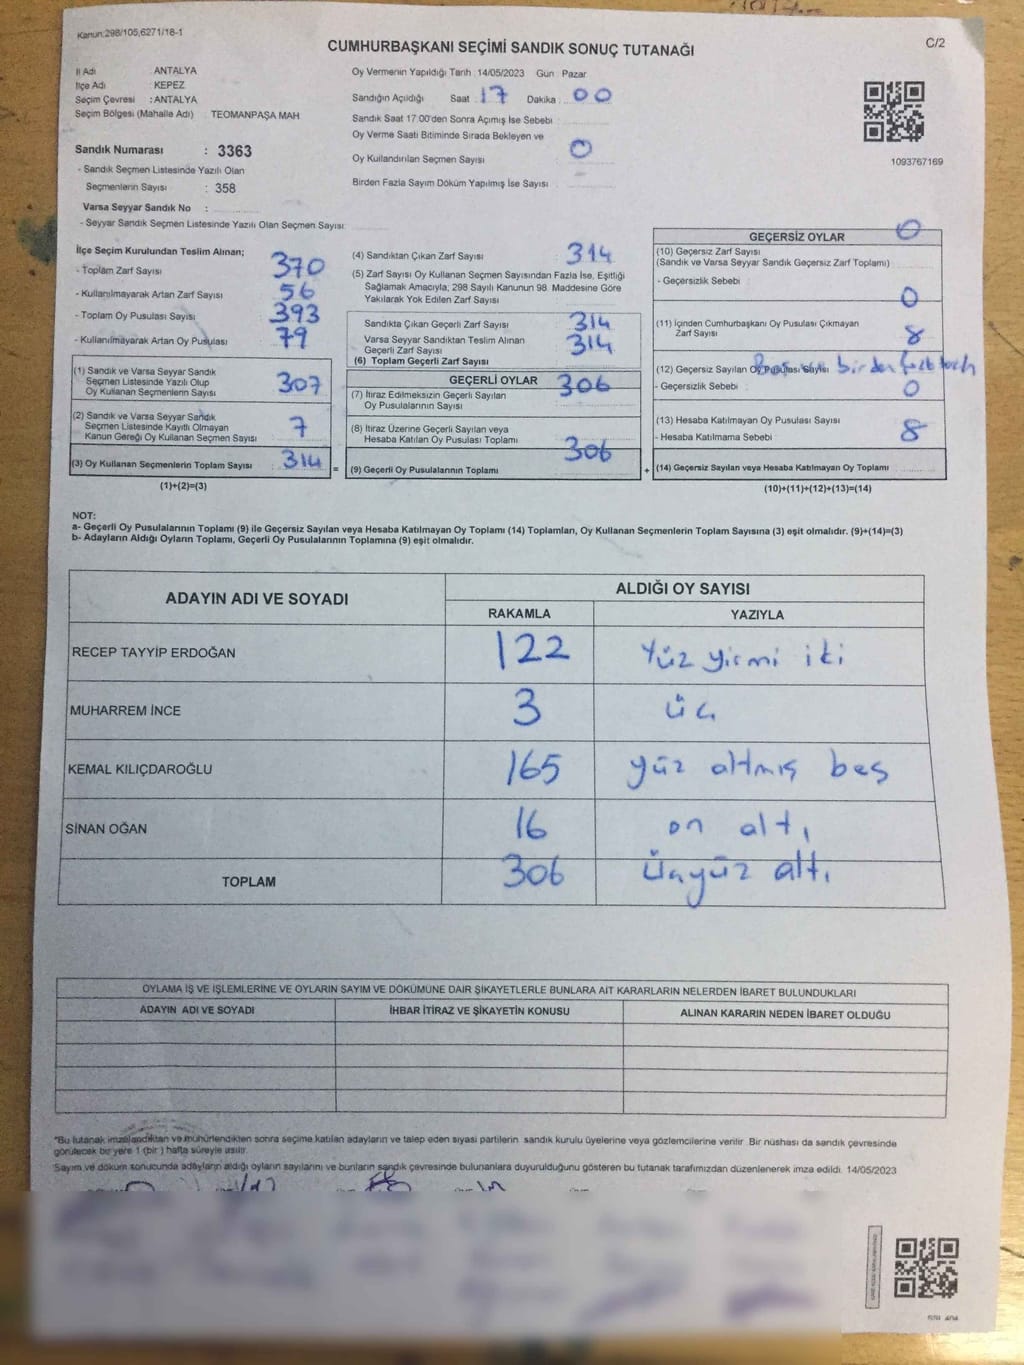 Kanun:298/105,6271/18-1
CUMHURBAŞKANI SEÇİMİ SANDIK SONUÇ TUTANAĞI
C/2
İl Adı ANTALYA
İlçe Adı : KEPEZ
Seçim Çevresi : ANTALYA
Seçim Bölgesi (Mahalle Adı) TEOMANPAŞA MAH
Sandık Numarası : 3363
- Sandık Seçmen Listesinde Yazılı Olan
Seçmenlerin Sayısı : 358
Varsa Seyyar Sandık No :
- Seyyar Sandık Seçmen Listesinde Yazılı Olan Seçmen Sayısı
Oy Vermenin Yapıldığı Tarih : 14/05/2023 Gün : Pazar
Sandığın Açıldığı Saat : 17 Dakika : 00
Sandık Saat 17:00'den Sonra Açımış İse Sebebi
Oy Verme Saati Bitiminde Sırada Bekleyen ve
Oy Kullandırılan Seçmen Sayısı 0
Birden Fazla Sayım Döküm Yapılmış İse Sayısı -
1093767169
İlçe Seçim Kurulundan Teslim Alınan;
- Toplam Zarf Sayısı 370
- Kullanılmayarak Artan Zarf Sayısı 56
- Toplam Oy Pusulası Sayısı 393
- Kullanılmayarak Artan Oy Pusulası 79
(1) Sandık ve Varsa Seyyar Sandık
Seçmen Listesinde Yazılı Olup
Oy Kullanan Seçmenlerin Sayısı 307
(2) Sandık ve Varsa Seyyar Sandık
Seçmen Listesinde Kayıtlı Olmayan
Kanun Gereği Oy Kullanan Seçmen Sayısı 7
(3) Oy Kullanan Seçmenlerin Toplam Sayısı : 314 =
(1)+(2)=(3)
(4) Sandıktan Çıkan Zarf Sayısı 314
(5) Zarf Sayısı Oy Kullanan Seçmen Sayısından Fazla İse, Eşitliği
Sağlamak Amacıyla; 298 Sayılı Kanunun 98. Maddesine Göre
Yakılarak Yok Edilen Zarf Sayısı
Sandıkta Çıkan Geçerli Zarf Sayısı 314
Varsa Seyyar Sandıktan Teslim Alınan
Geçerli Zarf Sayısı 314
(6) Toplam Geçerli Zarf Sayısı
GEÇERLİ OYLAR 306
(7) İtiraz Edilmeksizin Geçerli Sayılan
Oy Pusulalarının Sayısı
(8) İtiraz Üzerine Geçerli Sayılan veya
Hesaba Katılan Oy Pusulası Toplamı
306
(9) Geçerli Oy Pusulalarının Toplamı +
GEÇERSİZ OYLAR 0
(10) Geçersiz Zarf Sayısı
(Sandık ve Varsa Seyyar Sandık Geçersiz Zarf Toplamı)
- Geçersizlik Sebebi
0
(11) İçinden Cumhurbaşkanı Oy Pusulası Çıkmayan
Zarf Sayısı 8
(12) Geçersiz Sayılan Oy Pusulası Sayısı birden fazla
- Geçersizlik Sebebi 0
(13) Hesaba Katılmayan Oy Pusulası Sayısı
- Hesaba Katılmama Sebebi 8
(14) Geçersiz Sayılan veya Hesaba Katılmayan Oy Toplamı
(10)+(11)+(12)+(13)=(14)
NOT:
a- Geçerli Oy Pusulalarının Toplamı (9) ile Geçersiz Sayılan veya Hesaba Katılmayan Oy Toplamı (14) Toplamları, Oy Kullanan Seçmenlerin Toplam Sayısına (3) eşit olmalıdır. (9)+(14)=(3)
b- Adayların Aldığı Oyların Toplamı, Geçerli Oy Pusulalarının Toplamına (9) eşit olmalıdır.
ADAYIN ADI VE SOYADI
ALDIĞI OY SAYISI
RAKAMLA YAZIYLA
RECEP TAYYİP ERDOĞAN 122 Yüz yirmi iki
MUHARREM İNCE 3 üç
KEMAL KILIÇDAROĞLU 165 yüz altmış beş
SİNAN OĞAN 16 on altı
TOPLAM 306 Üçyüz altı
OYLAMA İŞ VE İŞLEMLERİNE VE OYLARIN SAYIM VE DÖKÜMÜNE DAİR ŞİKAYETLERLE BUNLARA AİT KARARLARIN NELERDEN İBARET BULUNDUKLARI
ADAYIN ADI VE SOYADI İHBAR İTİRAZ VE ŞİKAYETİN KONUSU ALINAN KARARIN NEDEN İBARET OLDUĞU
*Bu tutanak imzalandıktan ve mühürlendikten sonra seçime katılan adayların ve talep eden siyasi partilerin sandık kurulu üyelerine veya gözlemcilerine verilir. Bir nüshası da sandık çevresinde
görülecek bir yere 1 (bir) hafta süreyle asılır.
Sayım ve döküm sonucunda adayların aldığı oyların sayılarını ve bunların sandık çevresinde bulunanlara duyurulduğunu gösteren bu tutanak tarafımızdan düzenlenerek imza edildi. 14/05/2023